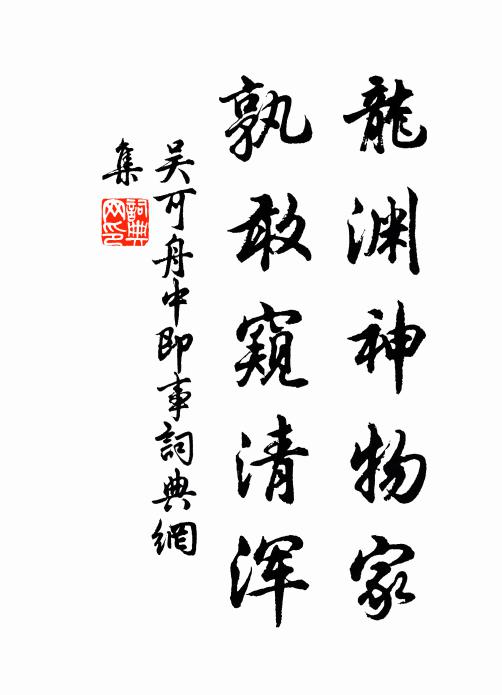 龍渊神物家
孰敢窺清浑
吴可舟中即事詞典網
集
詞典网印